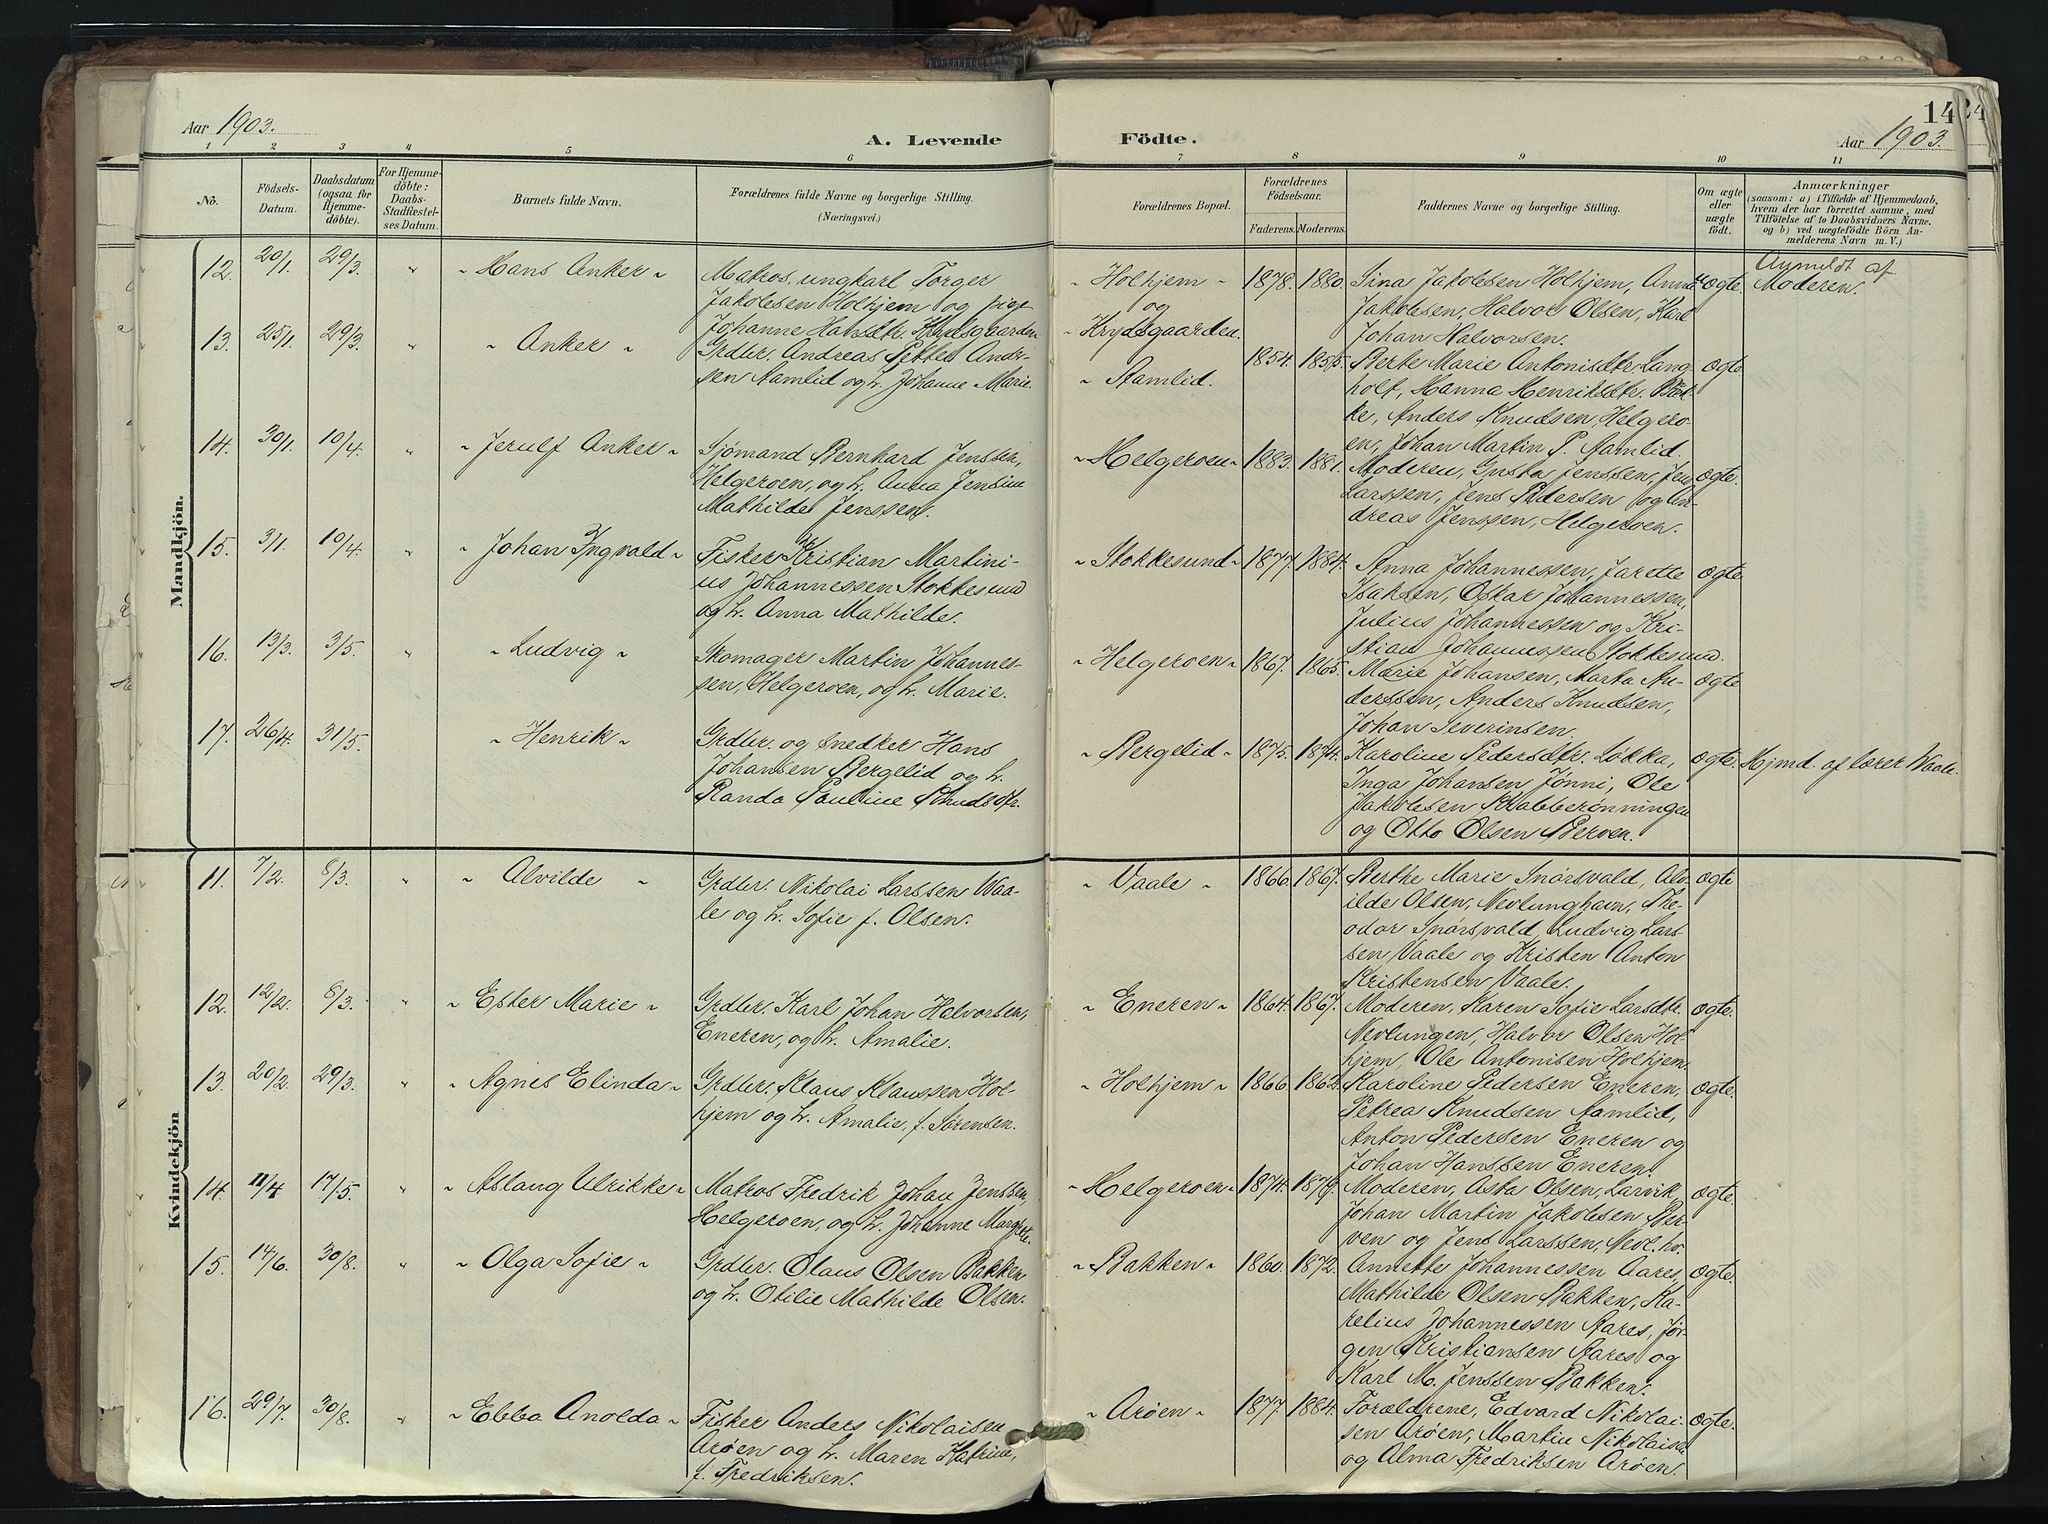 Aar 1903.
A. Levende
Födte.
14
24
Aar 1903.
1 2 3 4 5 6 7 8 9 10 11
Nô.
Födsels-
Datum.
Daabsdatum
(ogsaa for
Hjemme-
döbte).
For Hjemme-
döbte:
Daabs-
Stadfæstel-
ses Datum.
Barnets fulde Navn.
Forældrenes fulde Navne og borgerlige Stilling.
(Næringsvei.)
Forældrenes Bopæl.
Forældrenes
Födselsaar.
Faderens. Moderens.
Faddernes Navne og borgerlige Stilling.
Om ægte
eller
uægte
födt.
Anmærkninger
(saasom: a) i Tilfælde af Hjemmedaab,
hvem der har forrettet samme, med
Tilföielse af to Daabsvidners Navne.
og b) ved uægtefödte Börn An-
melderens Navn m. V.)
Mandkjön.
12. 20/1. 29/3. " " Hans Anker "
Matros, ungkarl Torger
Jakobsen Holhjem og pige
Johanne Hansdtr. Krydsgaarden
" Holhjem "
og
" Krydsgaarden.
1878. 1880.
Sina Jakobsen Holhjem, Anna
Jakobsen, Halvor Olsen, Karl
Johan Halvorsen.
uægte.
Anmeldt af
Moderen.
13. 25/1. 29/3. " " Anker "
Grdbr. Andreas Petter Andr-
sen Aamlid og h. Johanne Marie.
" Aamlid.
1854. 1855.
Berte Marie Antonisdtr. Lang-
holt, Hanna Henriksdtr. Bak-
ke, Anders Knudsen, Helgero-
en, Johan Martin P. Aamlid.
ægte.
14. 30/1. 10/4. " " Jerulf Anker "
Sjømand Bernhard Jenssen,
Helgeroen, og h. Anna Jensine
Mathilde Jenssen.
" Helgeroen "
1883. 1881.
Moderen, Gusta Jenssen, Jens
Larssen, Jens Pedersen og An-
dreas Jenssen, Helgeroen.
ægte.
15. 3/1. 10/4. " " Johan Ingvald "
Fisker Kristian Martini-
us Johannessen Stokkesund
og h. Anna Mathilde.
" Stokkesund "
1877. 1884.
Anna Johannessen, Jarette
Isaksen, Oskar Johannessen,
Julius Johannessen og Kri-
stian Johannessen Stokkesund.
ægte
16. 13/3. 3/5. " " Ludvig "
Skomager Martin Johannes-
sen, Helgeroen, og h. Marie.
" Helgeroen "
1867. 1865.
Marie Johansen, Marta An-
derssen, Anders Knudsen,
Johan Severinsen.
ægte
17. 26/4. 31/5. " Henrik "
Grdbr. og snedker Hans
Johansen Bergelid og h.
Randa Pauline Knudsdtr.
" Bergelid "
1875. 1874.
Karoline Pedersdtr. Løkka,
Inga Johansen Jønni, Ole
Jakobsen Krabberønningen
og Otto Olsen Berven.
ægte.
Hjmd. af lærer Vaale.
Kvindekjön
11. 7/2. 8/3. " " Alvilde "
Grdbr. Nikolai Larssen Vaa-
le og h. Sofie f. Olsen.
" Vaale "
1866. 1867.
Berthe Marie Snørsvald, Alv-
ilde Olsen, Nevlunghavn, The-
odor Snørsvald, Ludvig Lars-
sen Vaale og Kristen Anton
Kristensen Vaale.
ægte
12. 12/2. 8/3. " " Ester Marie "
Grdbr. Karl Johan Halvorsen,
Eneren, og h. Amalie.
" Eneren "
1864. 1867.
Moderen, Karen Sofie Larsdtr.
Nevlungen, Halvor Olsen Hol-
hjem, Ole Antonisen Holhjem.
ægte.
13. 20/2. 29/3. " " Agnes Elinda "
Grdbr. Klaus Klaussen Hol-
hjem og h. Amalie, f. Sørensen.
" Holhjem "
1866 1862.
Karoline Pedersen Eneren,
Petrea Knudsen Aamlid,
Anton Pedersen Eneren og
Johan Hanssen Eneren.
ægte.
14. 11/4 17/5. " " Aslaug Ulrikke "
Matros Fredrik Johan Jenssen,
Helgeroen, og h. Johanne Margrete.
" Helgeroen "
1874. 1879.
Moderen, Asta Olsen, Larvik,
Johan Martin Jakobsen Ber-
ven og Jens Larssen, Nevl. hv.
ægte.
15. 14/6. 30/8. " " Olga Sofie "
Grdbr. Olaus Olsen Bakken
og h. Otilie Mathilde Olsen.
" Bakken "
1860. 1872.
Annette Johannessen Aares,
Mathilde Olsen Bakken, Ka-
relius Johannessen Aares, Jør-
gen Kristiansen Aares og
Karl M. Jenssen Bakken.
ægte.
16. 29/7. 30/8. " " Ebba Anolda "
Fisker Anders Nikolaisen
Arøen og h. Maren Katrine,
f. Fredriksen.
" Arøen "
1877. 1884.
Forældrene, Edvard Nikolai-
sen Arøen, Martin Nikolaisen
og Alma Fredriksen Arøen.
ægte.